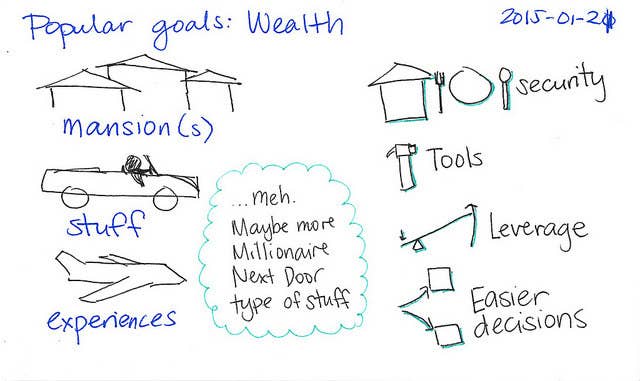 Popular goals: Wealth
mansion(s)
stuff
experiences
...meh.
Maybe more
Millionaire
Next Door
type of stuff
security
Tools
Leverage
Easier
decisions